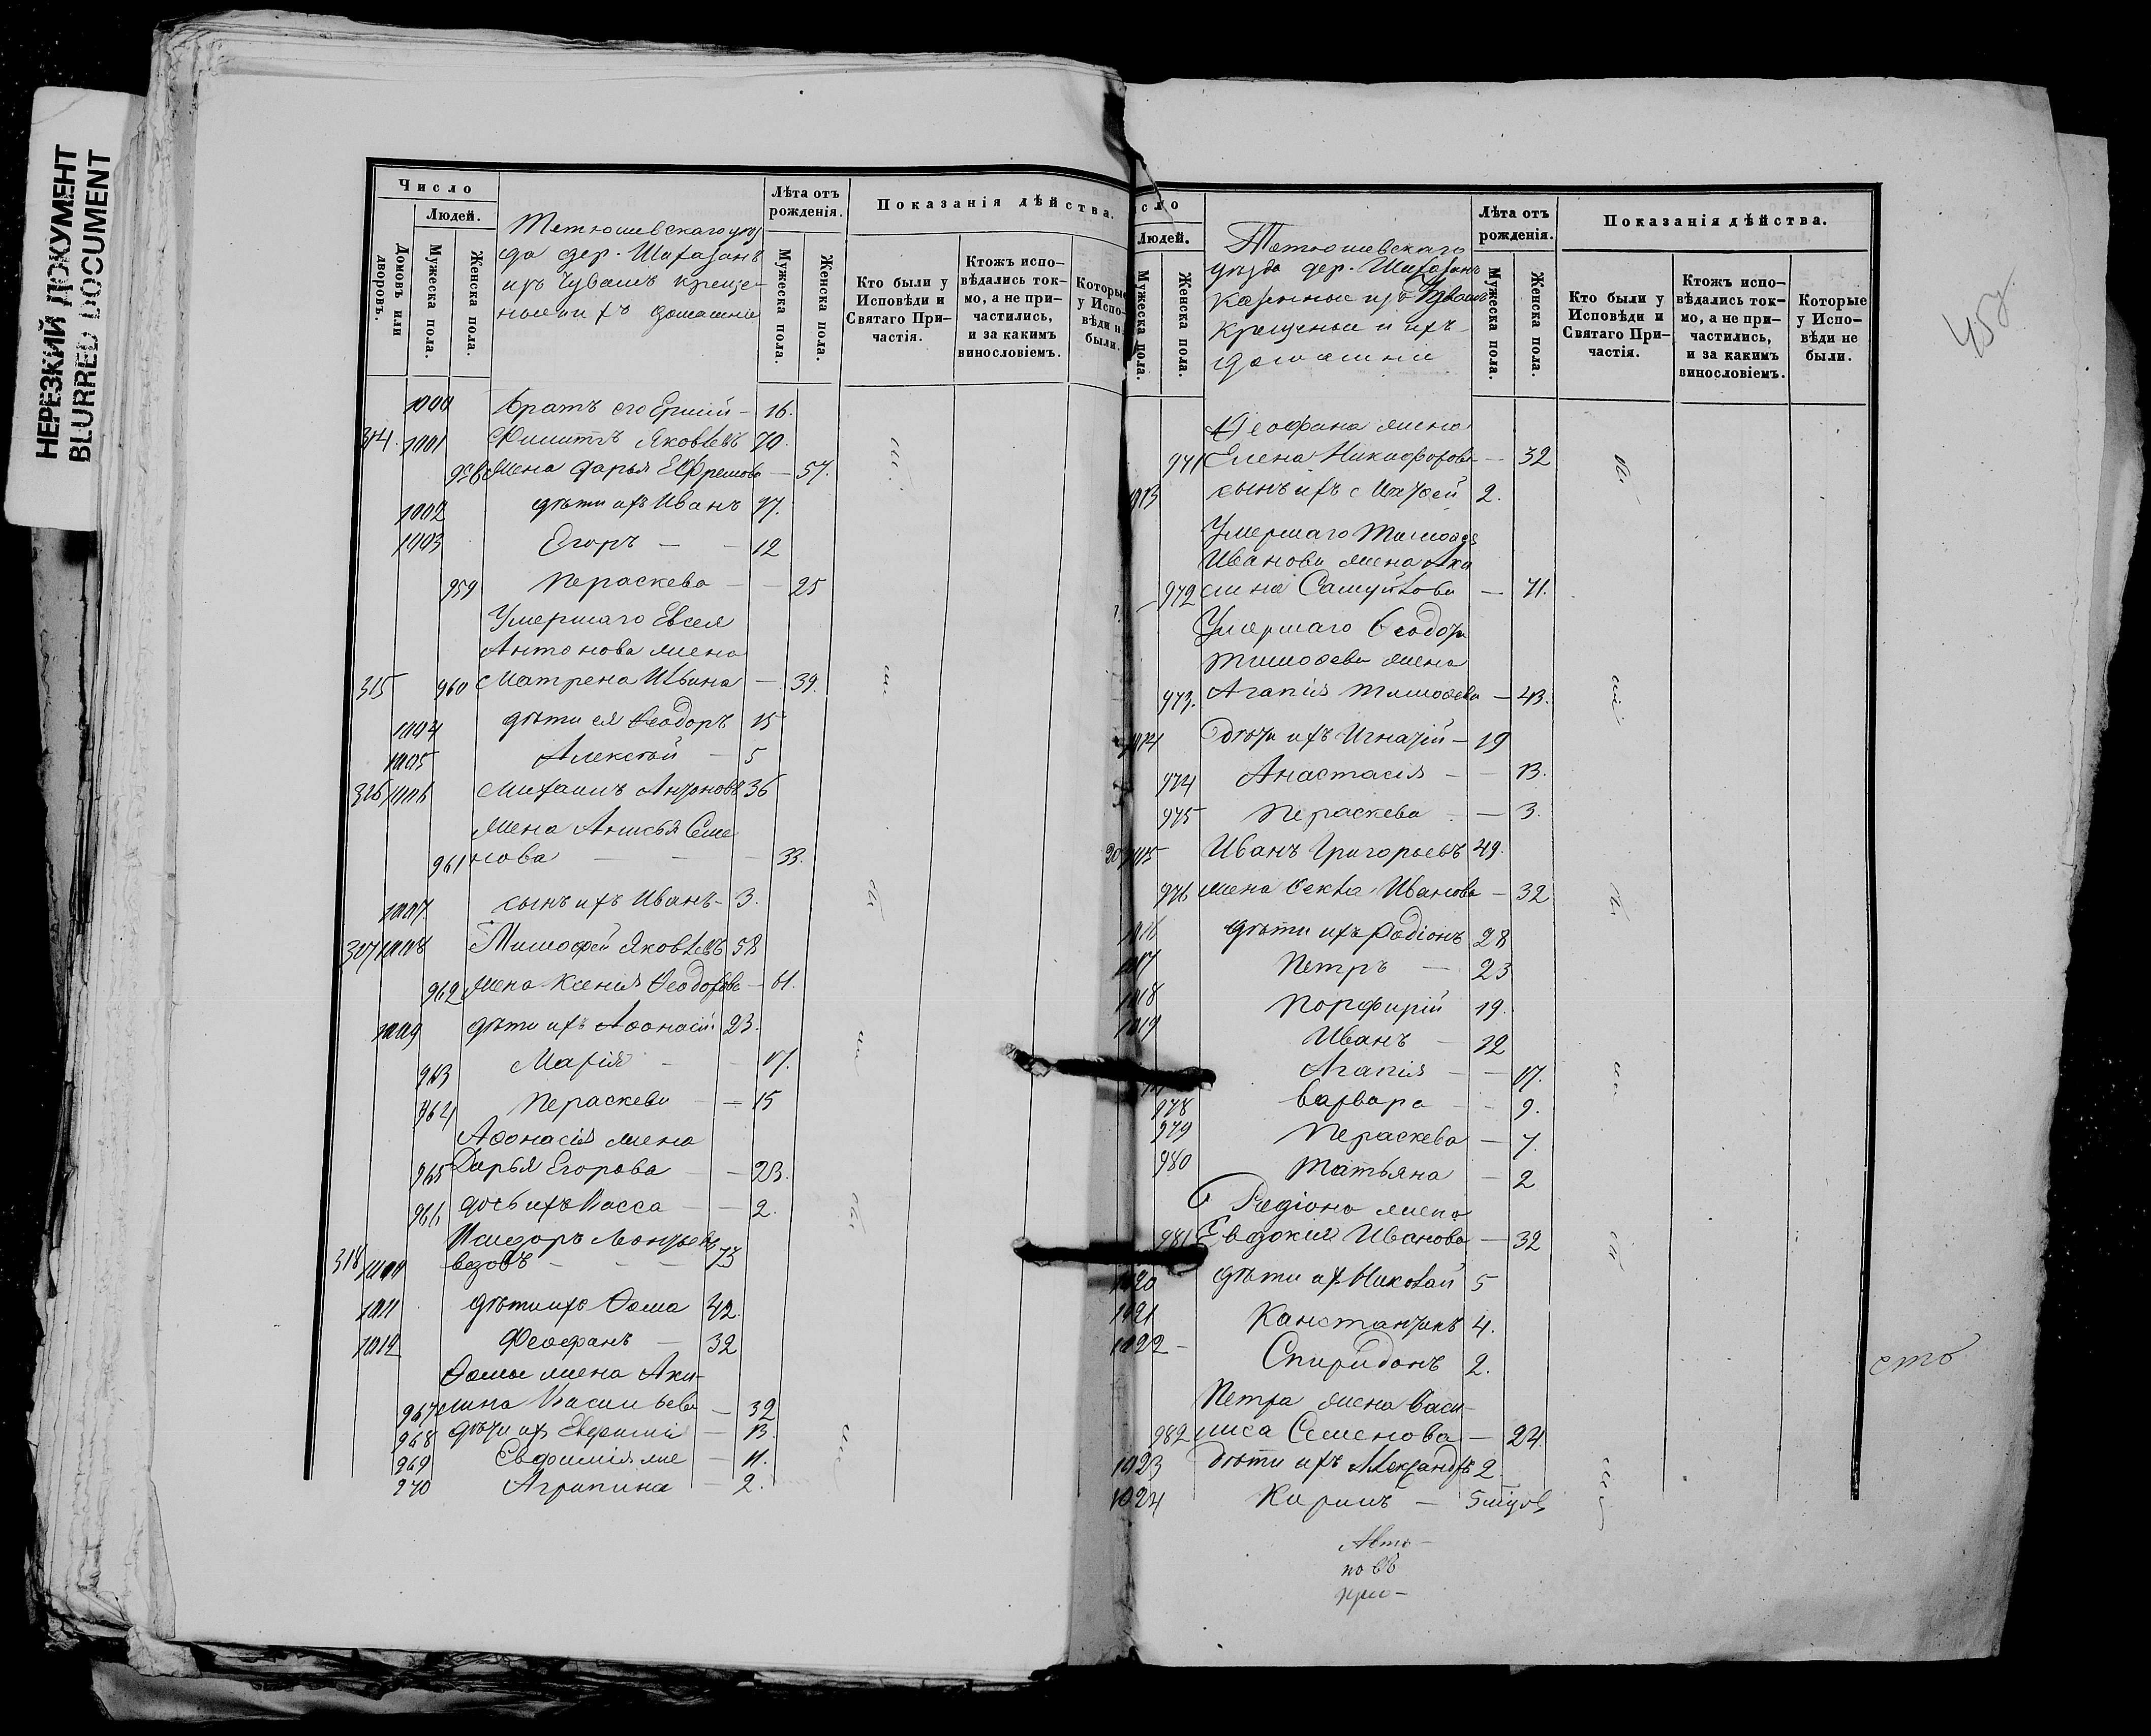 НЕРЕЗКИЙ ДОКУМЕНТ
BLURRED DOCUMENT
Число
Людей.
Домовъ или дворовъ.
Мужеска пола.
Женска пола.
Тетюшевскаго уѣз
да дер. Шихазанъ
изъ Чувашъ креще-
ные и ихъ домашніе
Лѣта отъ рожденія.
Мужеска пола.
Женска пола.
Показанія дѣйства.
Кто были у Исповѣди и Святаго При-
частія.
Ктожъ испо-
вѣдались ток-
мо, а не при-
частились,
и за какимъ
винословіемъ.
Которые
у Испо-
вѣди не
были.
1000 братъ его Ермій - 16.
314. 1001 Филиппъ Яковлевъ 70.
958 жена Дарья Ефремова - 57.
1002 дѣти ихъ Иванъ 17.
1003 Егоръ - - 12
959 Пераскева - - 25
Умершаго Евсея
Антонова жена
315 960 Матрена Ильина - 39.
1004 дѣти ея Ѳеодоръ 15
1005 Алексѣй - 5
316 1006 Михаилъ Антоновъ 36
жена Анисья Семе
961 нова - - - 33.
1007 сынъ ихъ Иванъ - 3.
317 1008 Тимофей Яковлевъ 58
962 жена Ксенія Ѳеодорова - 61.
1009 дѣти ихъ Аѳонасій 23.
963 Марія - - 17.
964 Пераскева - - 15
Аѳонасія жена
965 Дарья Егорова - - 23.
966 дочь ихъ Васса - - 2.
318 1010 73
1011 дѣти ихъ Ѳома 42.
1012 Феофанъ - 32
Ѳомы жена Аки-
967 лина Васильева - 32
968 дѣти ихъ - 13.
969 Евфимія - 11.
970 Агрипина - 2.
Число
Людей.
Мужеска пола.
Женска пола.
Тетюшевскаго
уѣзда дер. Шихазанъ
казенные изъ Чувашъ
крещеные и ихъ
домашніе
Лѣта отъ
рожденія.
Мужеска пола.
Женска пола.
Показанія дѣйства.
Кто были у
Исповѣди и
Святаго При-
частія.
Ктожъ испо-
вѣдались ток-
мо, а не при-
частились,
и за какимъ
винословіемъ.
Которые
у Испо-
вѣди не
были.
Ѳеофана жена
971 Елена Никифорова - 32
1013 сынъ ихъ Матѳей 2.
Умершаго Тимоѳея
Иванова жена Аки
972 лина Самуйлова - 71.
Умершаго Ѳеодора
Тимоѳева жена
973. Агапія Тимоѳева - 43.
1014 дѣти ихъ Игнатій - 19
974 Анастасія - - 13.
975 Пераскева - - 3.
1015 Иванъ Григорьевъ 49.
976 жена Ѳекла Иванова - 32
1016 дѣти ихъ Родіонъ 28
1017 Петръ - 23
1018 Порфирій 19.
1019 Иванъ - 12
Агапія - - 17.
978 Варвара - - 9.
979 Пераскева - 7.
980 Татьяна - 2
Родіона жена
981 Евдокія Иванова - 32
1020 дѣти ихъ Николай 5
1021 Канстантинъ 4.
1022 - Спиридонъ 2.
Петра жена Васи-
982 лиса Семенова - 24.
1023 дѣти ихъ Александръ 2
1024 Кирилъ -